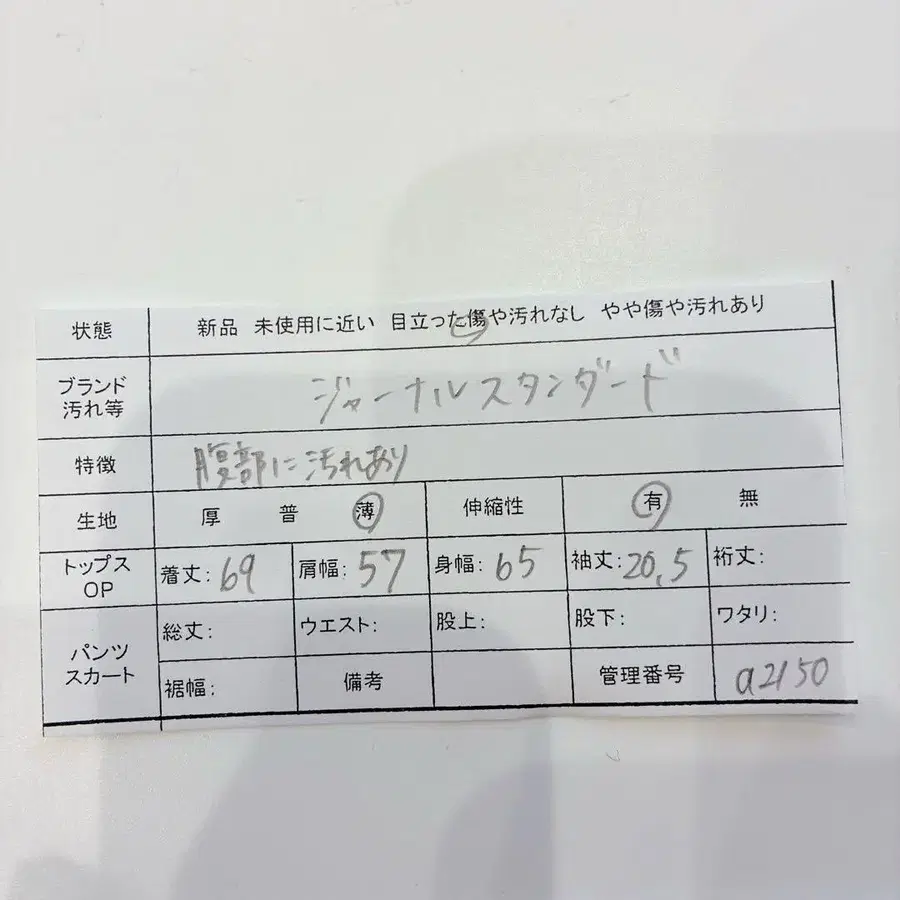 状態 新品 未使用に近い 目立った傷や汚れなし やや傷や汚れあり
ブランド
汚れ等
ジャーナルスタンダード
特徴 腹部に汚れあり
生地 厚 普 薄 伸縮性 有 無
トップス
OP
着丈:69 肩幅:57 身幅:65 袖丈:20.5 裄丈:
パンツ
スカート
総丈: ウエスト: 股上: 股下: ワタリ:
裾幅: 備考 管理番号 a2150